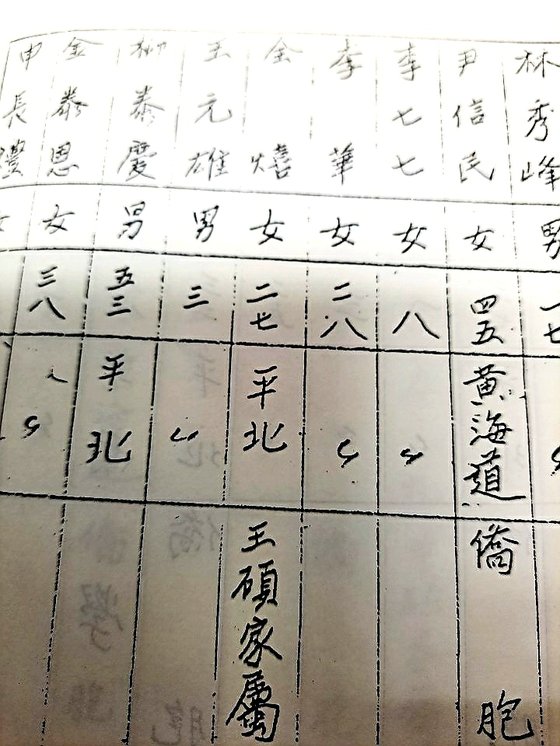 林秀峰 男 一七 〃
尹信民 女 四五 黄海道 僑胞
李七七 女 八 〃
李華 女 二八 〃
金嬉 女 二七 平北 王碩家屬
王元雄 男 三 〃
柳泰慶 男 五三 平北
金泰恩 女 三八 〃
申長禮 女